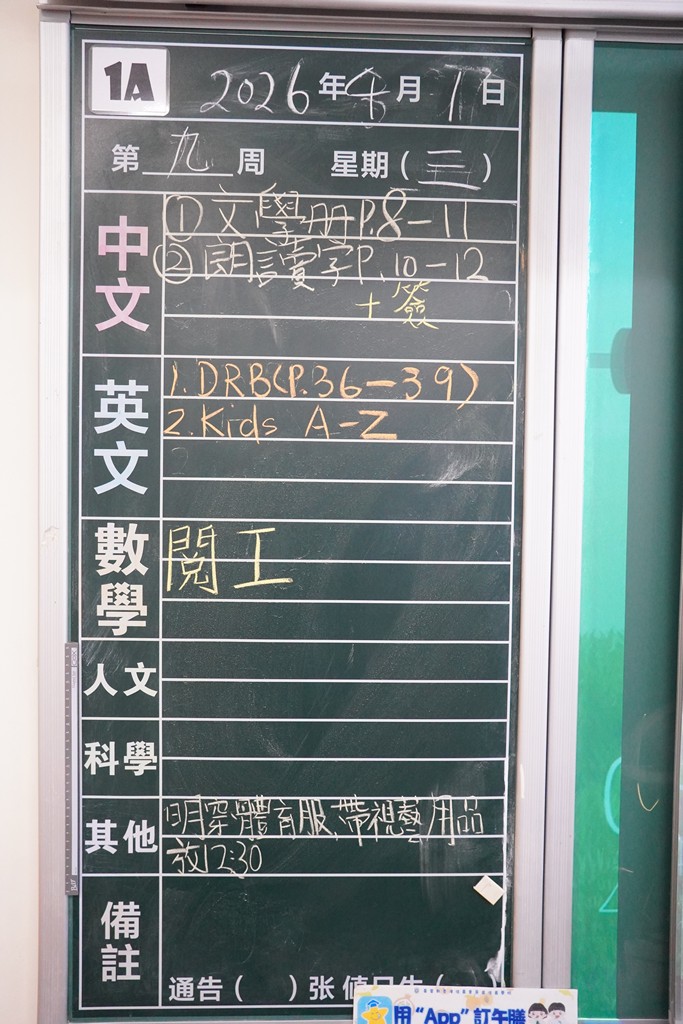 1A 2026年4月1日
第九周 星期(三)
中文
①文學册P.8-11
②朗讀字P.10-12
+簽
英文
1. DRB(P.36-39)
2. Kids A-Z
數學
閱工
人文
科學
其他
明穿體育服,帶視藝用品
放12:30
備註
通告( )张
用 “App” 訂午膳